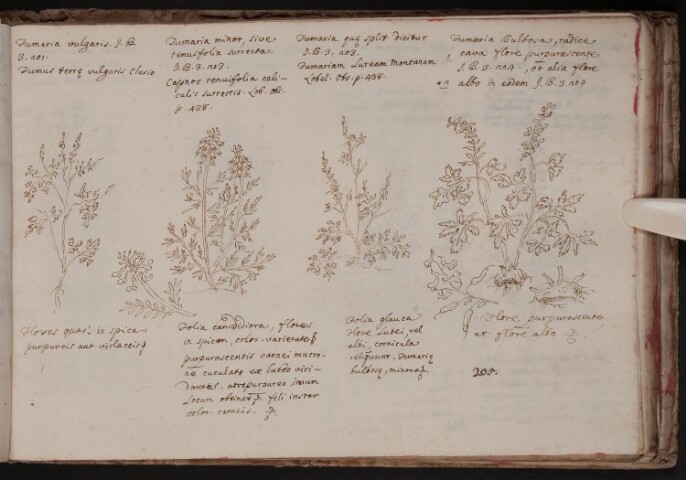 Fumaria vulgaris. J. B.
3. no1.
Fumus terrę vulgaris Clusio
Fumaria minor, sive
tenuifolia surrecta.
J. B. 3. no3.
Capnos tenuifolia cali-
culis surrectis. Lob. obs.
p. 438.
Fumaria quę split dicitur
J. B. 3. no3.
Fumariam Luteam Montanam
Lobel. Obs. p. 438.
Fumaria Bulbosa, radice
cava flore purpurascente
J. B. 3. no4., et alia flore
albo in eodem J. B. 3. no4
Flores quasi in spica
purpureis aut violaceis
Folia candidiora, flores
in spicam, color. varietate
purpurascentis carnei mucro-
ne cuculato ex luteo viri-
dantes. atropurpureo imum
Locum obtinet. feli instar
color. carneis.
Folia glauca
Flore Lutei, vel
albi, cornicula
reliquunt. Fumarię
bulbosę, minora
Flore purpurascente
et flore albo
200.